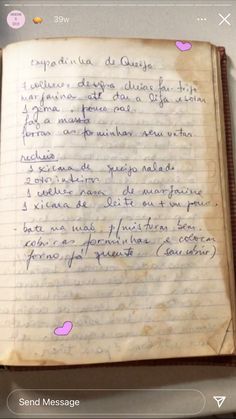 39w
Empadinha de Queijo
1 colher de sopa cheias far. trigo
margarina até dar a liga e soiar
1 gema, pouco sal
faz a massa
forras as forminhas sem untar
recheio
1 xícara de queijo ralado
2 ovos inteiros
1 colher rasa de margarina
1 xícara de leite ou + um pouc.
bate na mão, p/ misturar bem
cobri as forminhas e colocar
forno já quente (sem cobrir)
Send Message